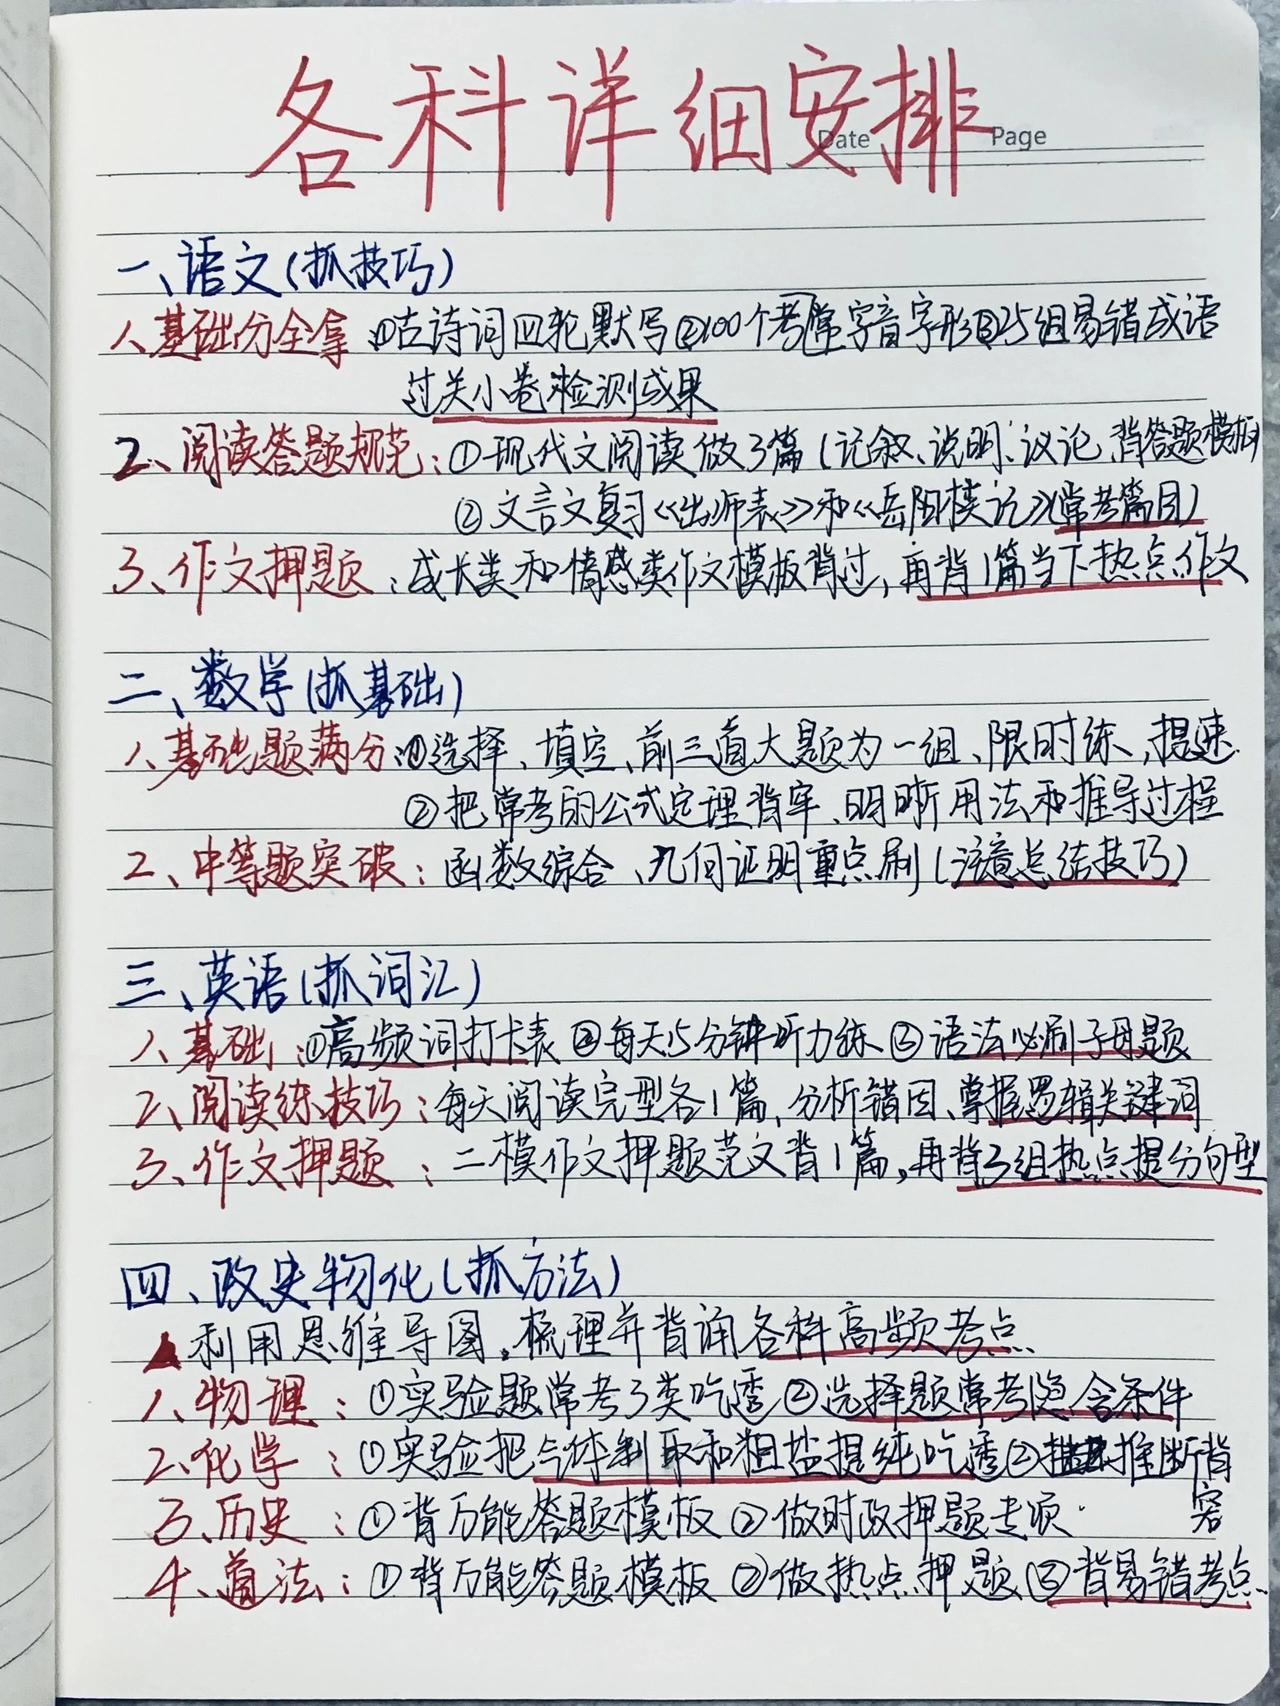 各科详细安排
Date Page
一、语文(抓技巧)
1、基础分全拿 ①古诗词四轮默写②100个考常字音字形③25组易错成语
过关小卷检测成果
2、阅读答题规范:①现代文阅读做3篇(记叙、说明、议论,背答题模板)
②文言文复习《出师表》和《岳阳楼记》(常考篇目)
3、作文押题:成长类和情感类作文模板背过,再背1篇当下热点作文
二、数学(抓基础)
1、基础题满分:①选择、填空、前三道大题为一组、限时练,提速.
②把常考的公式定理背牢、明晰用法和推导过程
2、中等题突破:函数综合、几何证明重点刷(注意总结技巧)
三、英语(抓词汇)
1、基础:①高频词打卡表②每天15分钟听力练③语法必刷子母题
2、阅读练技巧:每天阅读完型各1篇,分析错因、掌握逻辑关键词
3、作文押题:二模作文押题范文背1篇,再背3组热点提分句型
四、政史物化(抓方法)
▲利用思维导图,梳理并背诵各科高频考点
1、物理:①实验题常考3类吃透②选择题常考隐含条件
2、化学:①实验把气体制取和粗盐提纯吃透②推断背
容
3、历史:①背万能答题模板②做时政押题专项.
4、道法:①背万能答题模板②做热点押题③背易错考点.